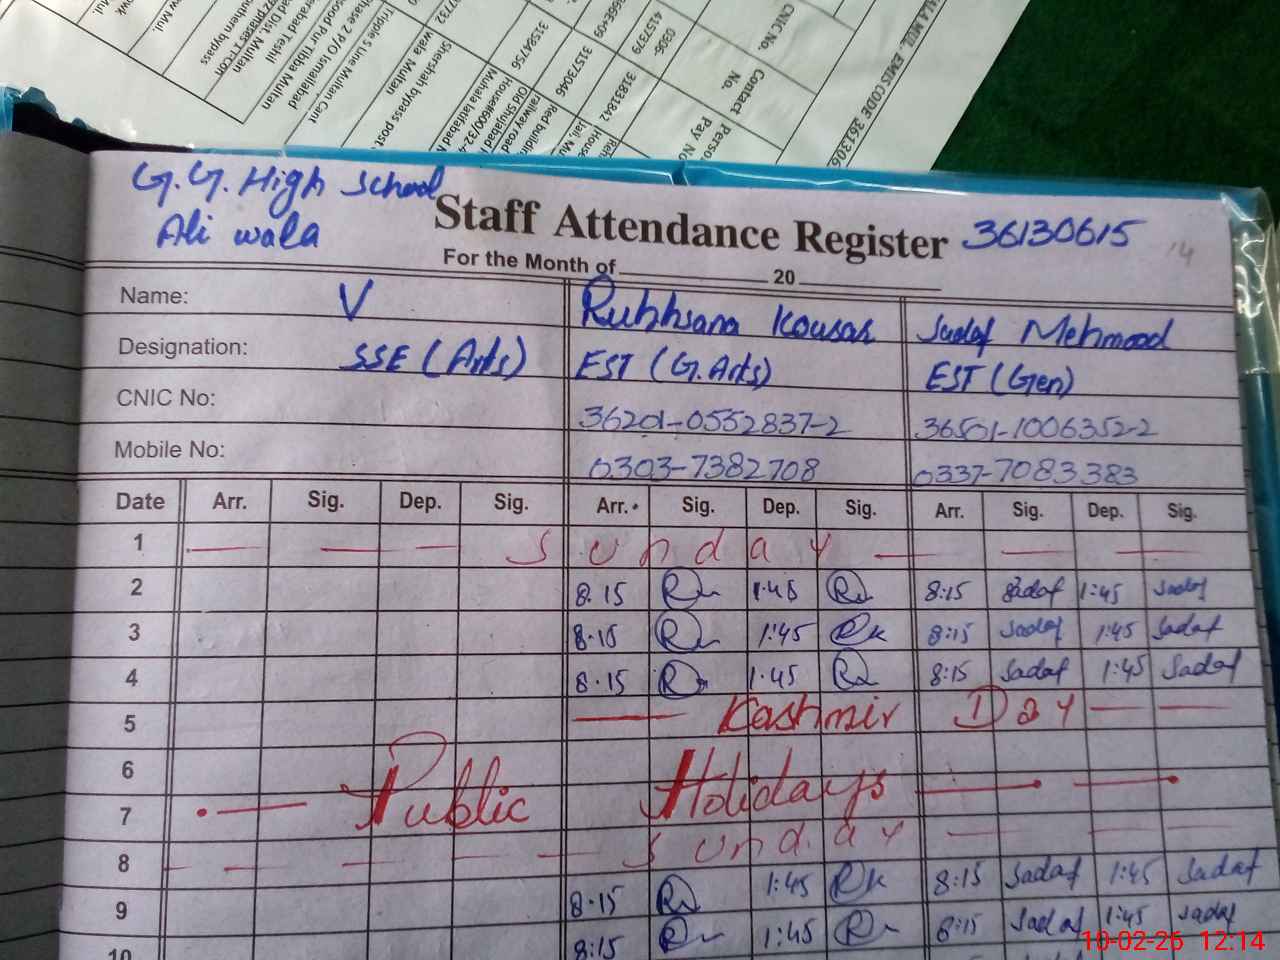 ALA MUL. EMIS CODE 361306
CNIC No.
Contact No.
Pay No
0306-4157379
31831842
31573046
31584756
Red buildin
railway road
Old Shujabad
House#600/32-
Shershah bypass post
wala Multan
Triple s Line Multan Cant
hase 2 P/O Ismailabad
sood Pur Tibba Multan
bad Dist. Multan
uthern bypass
G.G. High School
Ali wala
Staff Attendance Register 36130615 14
For the Month of 20
Name: V Rukhsana Kousar Sadaf Mehmood
Designation: SSE (Arts) EST (G.Arts) EST (Gen)
CNIC No: 36201-0552837-2 36501-1006352-2
Mobile No: 0303-7382708 0337-7083383
Date Arr. Sig. Dep. Sig. Arr. Sig. Dep. Sig. Arr. Sig. Dep. Sig.
1 Sunday
2 8.15 1:45 8:15 Sadaf 1:45 Sadaf
3 8.15 1:45 Rk 8:15 Sadaf 1:45 Sadaf
4 8.15 1:45 8:15 Sadaf 1:45 Sadaf
5 Kashmir Day
6
7 Public Holidays
8 Sunday
9 8.15 1:45 Rk 8:15 Sadaf 1:45 Sadaf
10 8:15 1:45 8:15 Sadaf 1:45 Sadaf
10-02-26 12:14